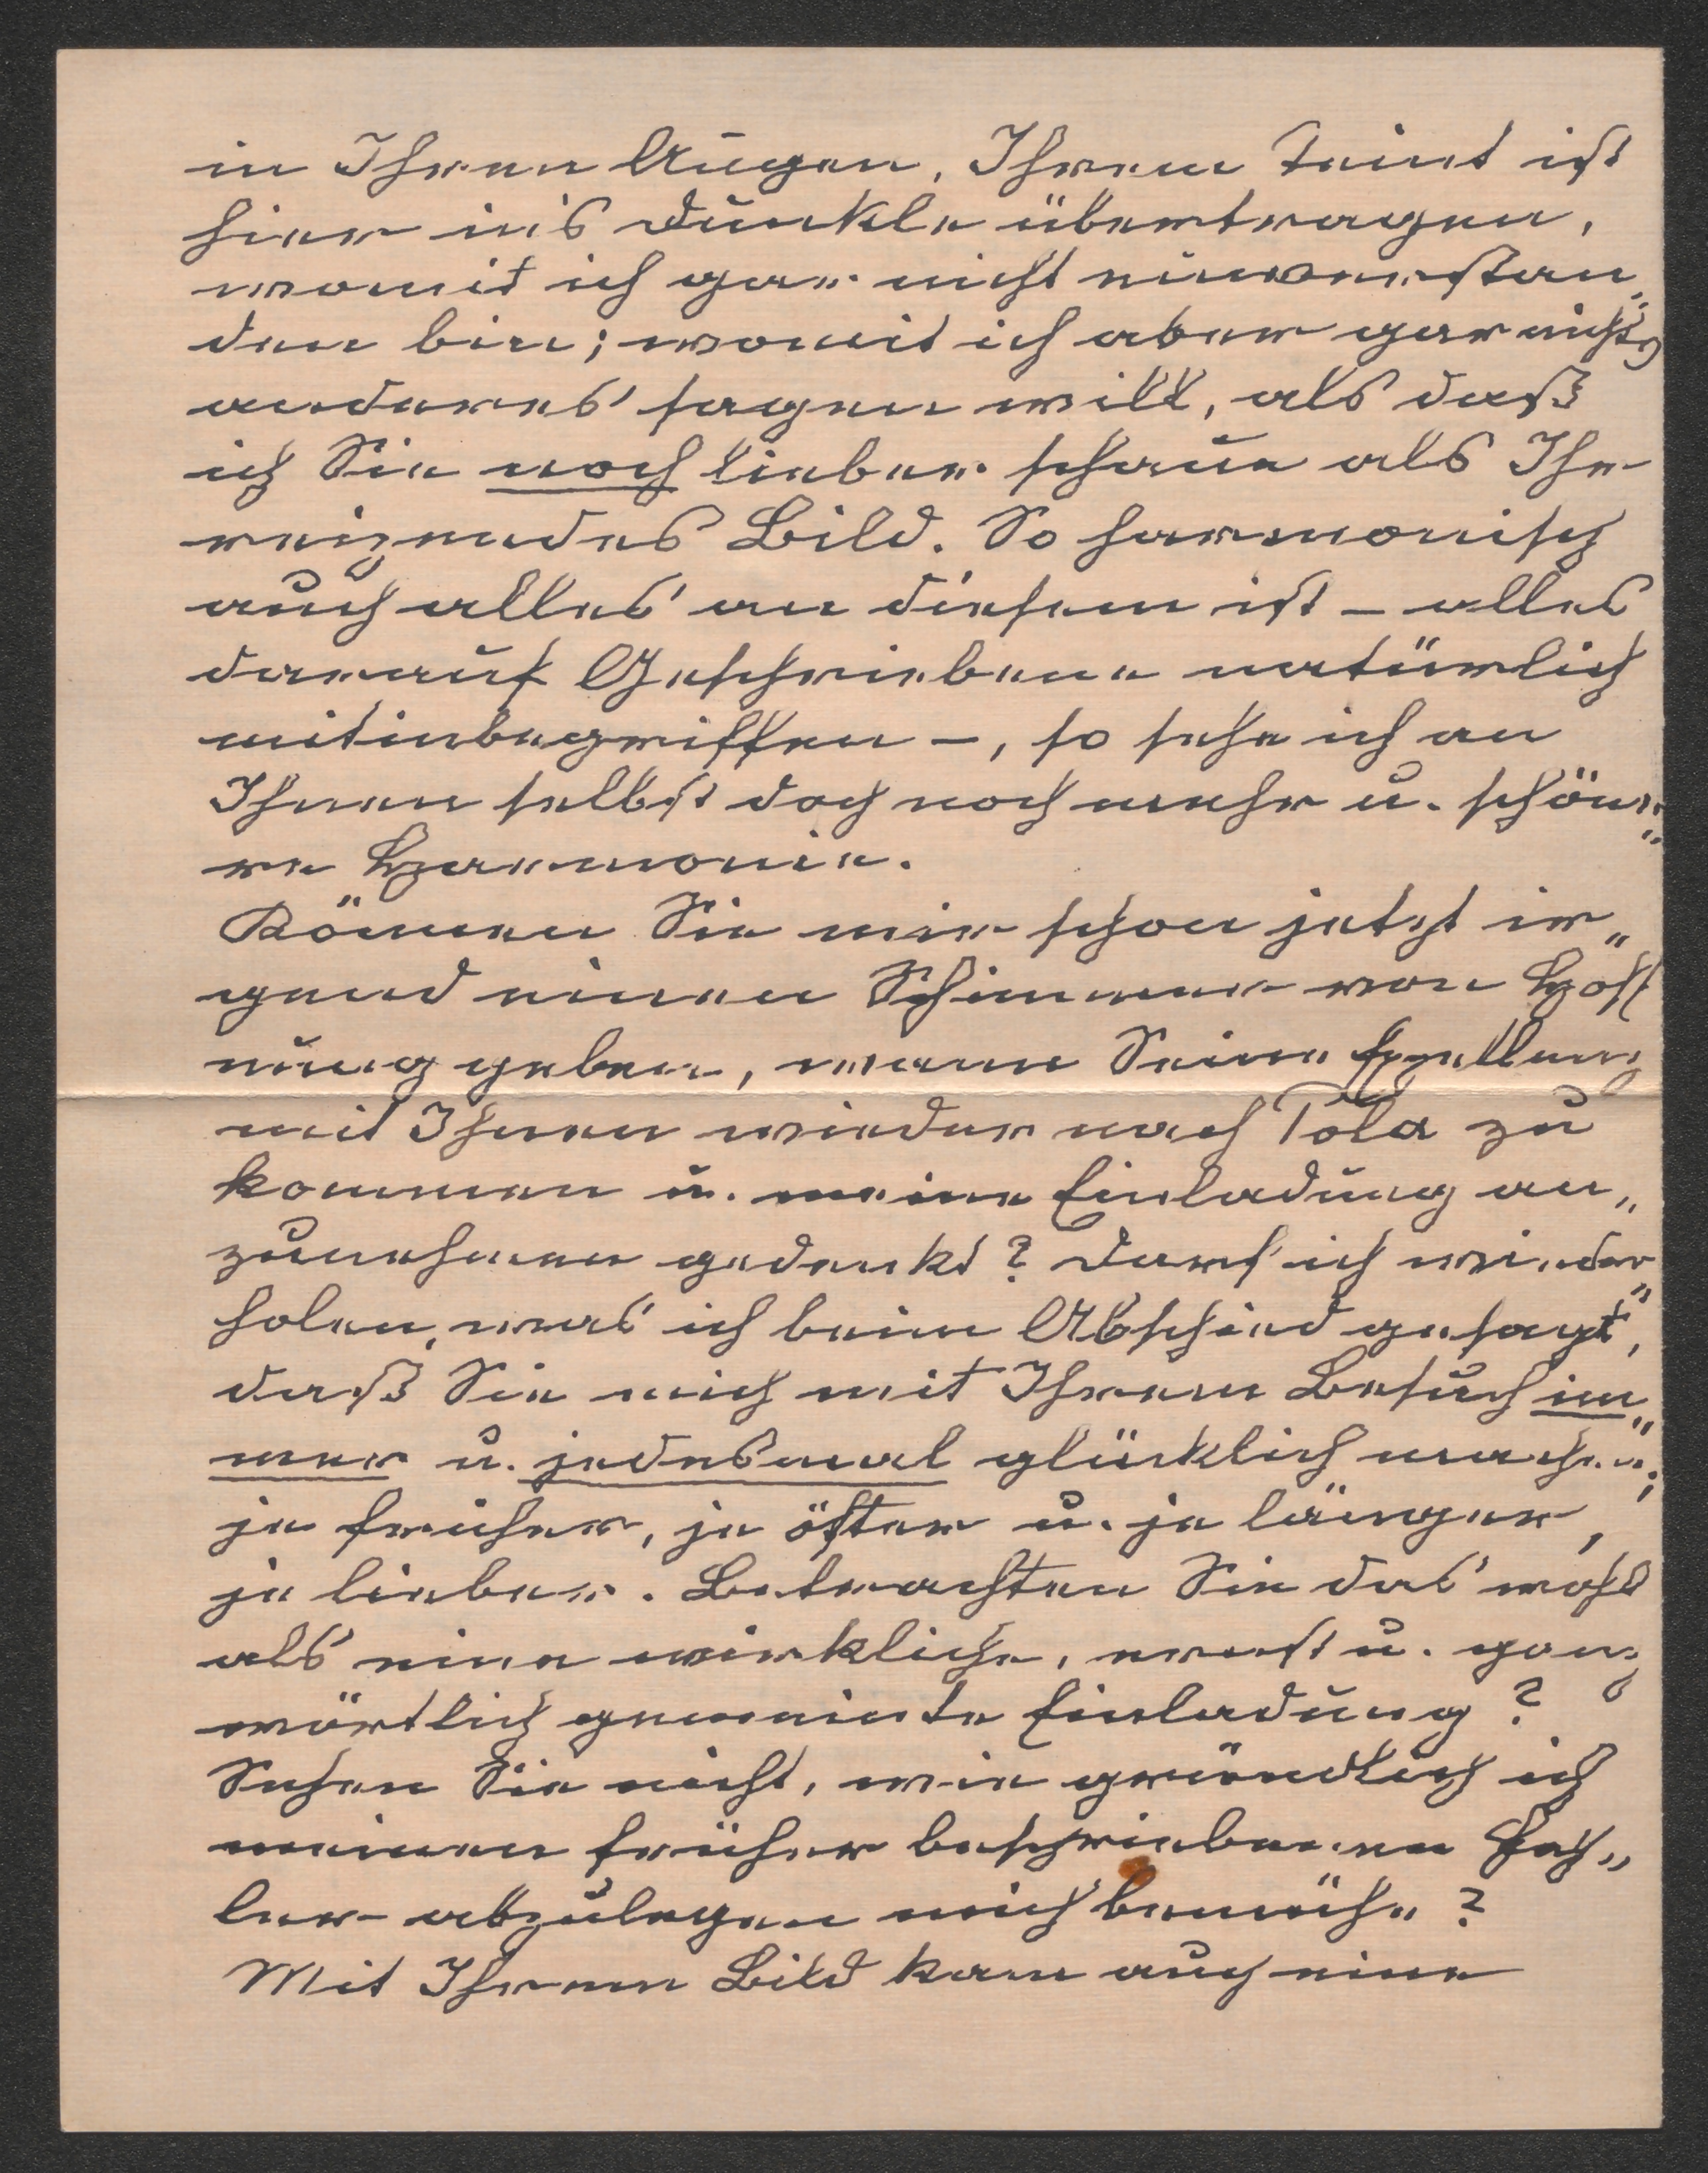 in Ihren Augen, Ihrem Teint ist
hier in's dunkle übertragen,
womit ich gar nicht einverstan„
den bin; womit ich aber gar nichts
anderes sagen will, als daß
ich Sie noch lieber schaue als Ihr
reizendes Bild. So harmonisch
auch alles an diesem ist – alles
darauf Geschriebene natürlich
mitinbegriffen –, so sehe ich an
Ihnen selbst doch noch mehr u. schöne„
re Harmonie.
Können Sie mir schon jetzt ir„
gend einen Schimmer von Hoff
nung geben, wann Seine Exzellenz
mit Ihnen wieder nach Pola zu
kommen u. meine Einladung an„
zunehmen gedenkt? Darf ich wieder„
holen, was ich beim Abschied gesagt,
daß Sie mich mit Ihrem Besuch im„
mer u. jedesmal glücklich machen;
je früher, je öfter u. je länger,
je lieber. Betrachten Sie das wohl
als eine wirkliche, ernst u. ganz
wörtlich gemeinte Einladung?
Sehen Sie nicht, wie gründlich ich
meinen früher beschriebenen Feh„
ler abzulegen mich bemühe?
Mit Ihrem Bild kam auch eine